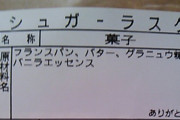 シュガーラスク
名称 菓子
原材料名 フランスパン、バター、グラニュウ糖
バニラエッセンス
ありがと